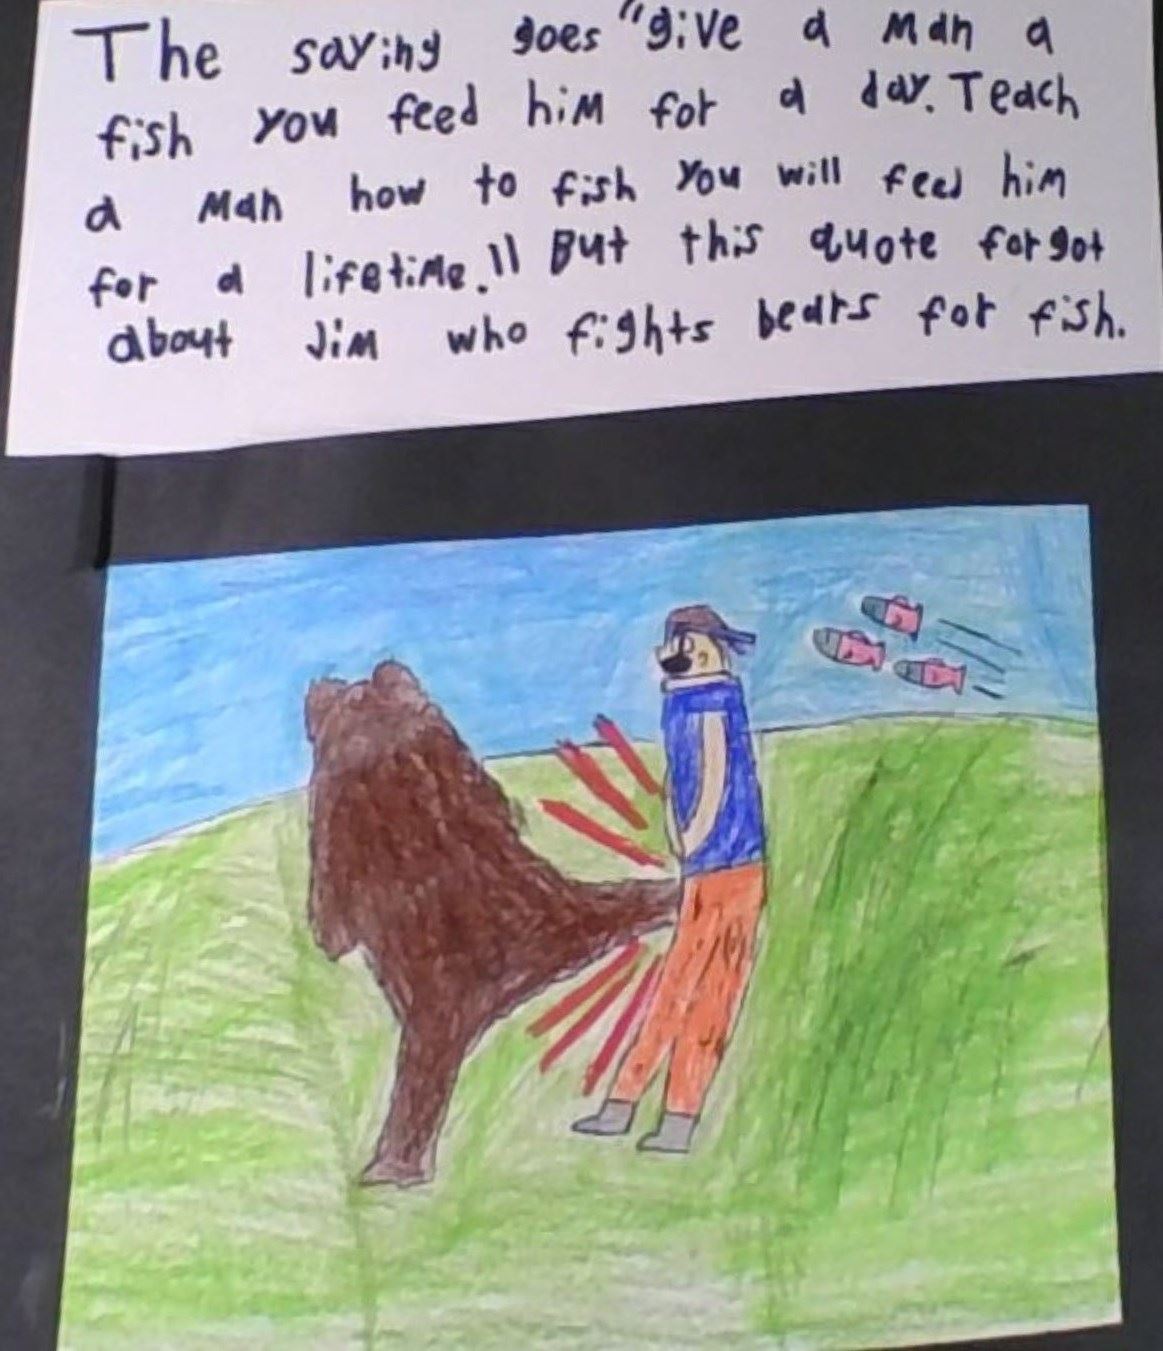 The saying goes "give a man a
fish you feed him for a day. Teach
a man how to fish you will feed him
for a lifetime." But this quote forgot
about Jim who fights bears for fish.